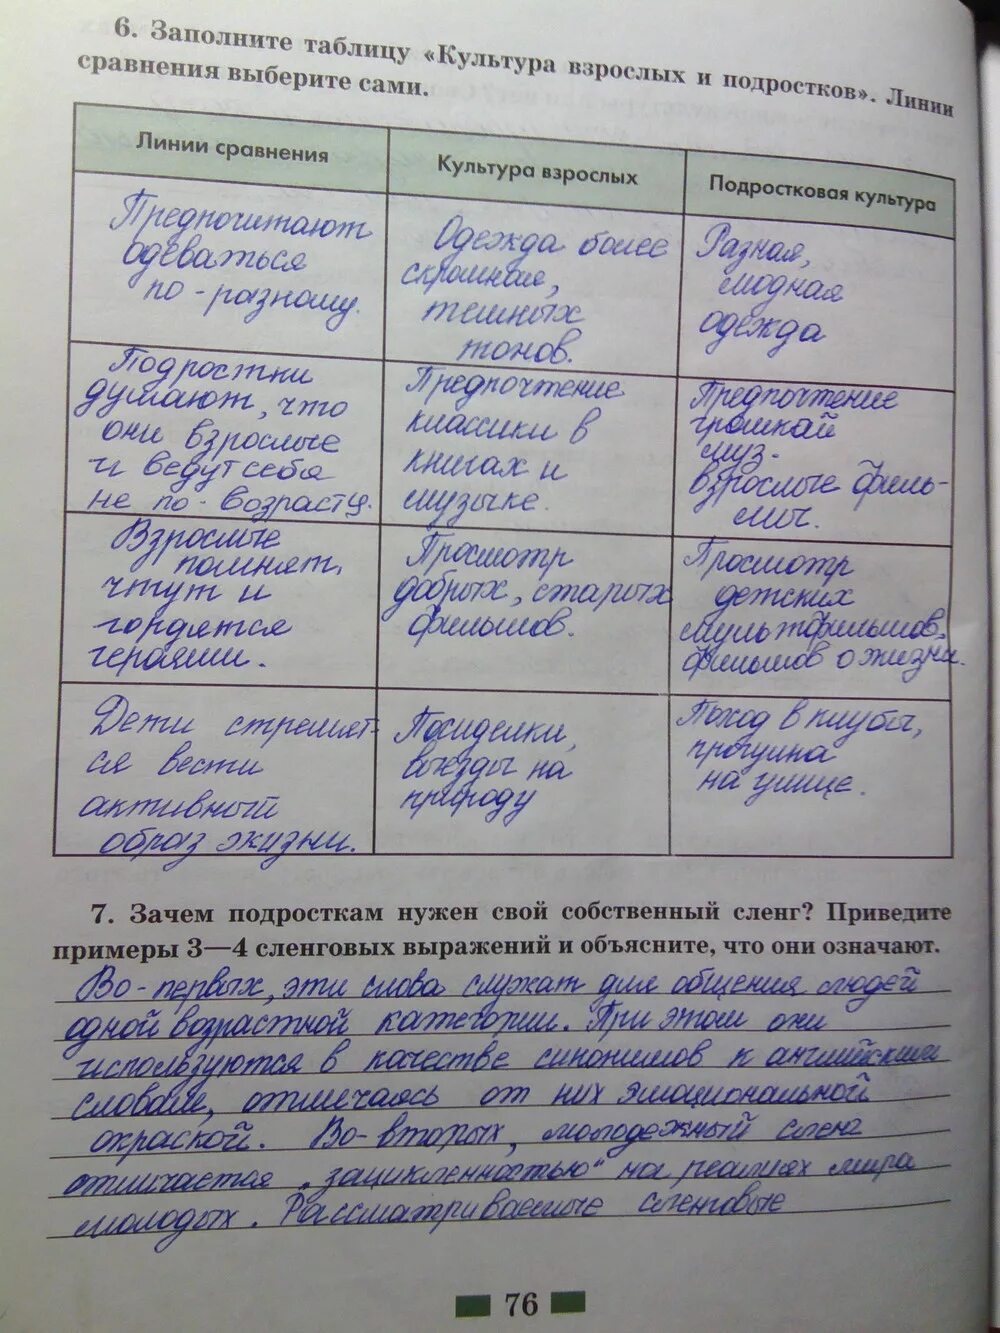 6. Заполните таблицу «Культура взрослых и подростков». Линии
сравнения выберите сами.
Линии сравнения
Культура взрослых
Подростковая культура
Предпочитают
одеваться
по-разному.
Одежда более
скромная,
темных
тонов.
Разная,
модная
одежда
Подростки
думают, что
они взрослые
и ведут себя
не по-возрасту.
Предпочтение
классики в
книгах и
музыке.
Предпочтение
громкой
муз.
взрослые филь-
мы.
Взрослые
помнят,
чтут и
гордятся
героями.
Просмотр
добрых, старых
фильмов.
Просмотр
детских
мультфильмов,
фильмов о жизни.
Дети стремят-
ся вести
активный
образ жизни.
Посиделки,
выезды на
природу
Поход в клубы,
прогулка
на улице.
7. Зачем подросткам нужен свой собственный сленг? Приведите
примеры 3—4 сленговых выражений и объясните, что они означают.
Во-первых, эти слова служат для общения людей
одной возрастной категории. При этом они
используются в качестве синонимов к английским
словам, отличаясь от них эмоциональной
окраской. Во-вторых, молодежный сленг
отличается „зацикленностью" на реалиях мира
молодых. Рассматриваемые сленговые
76